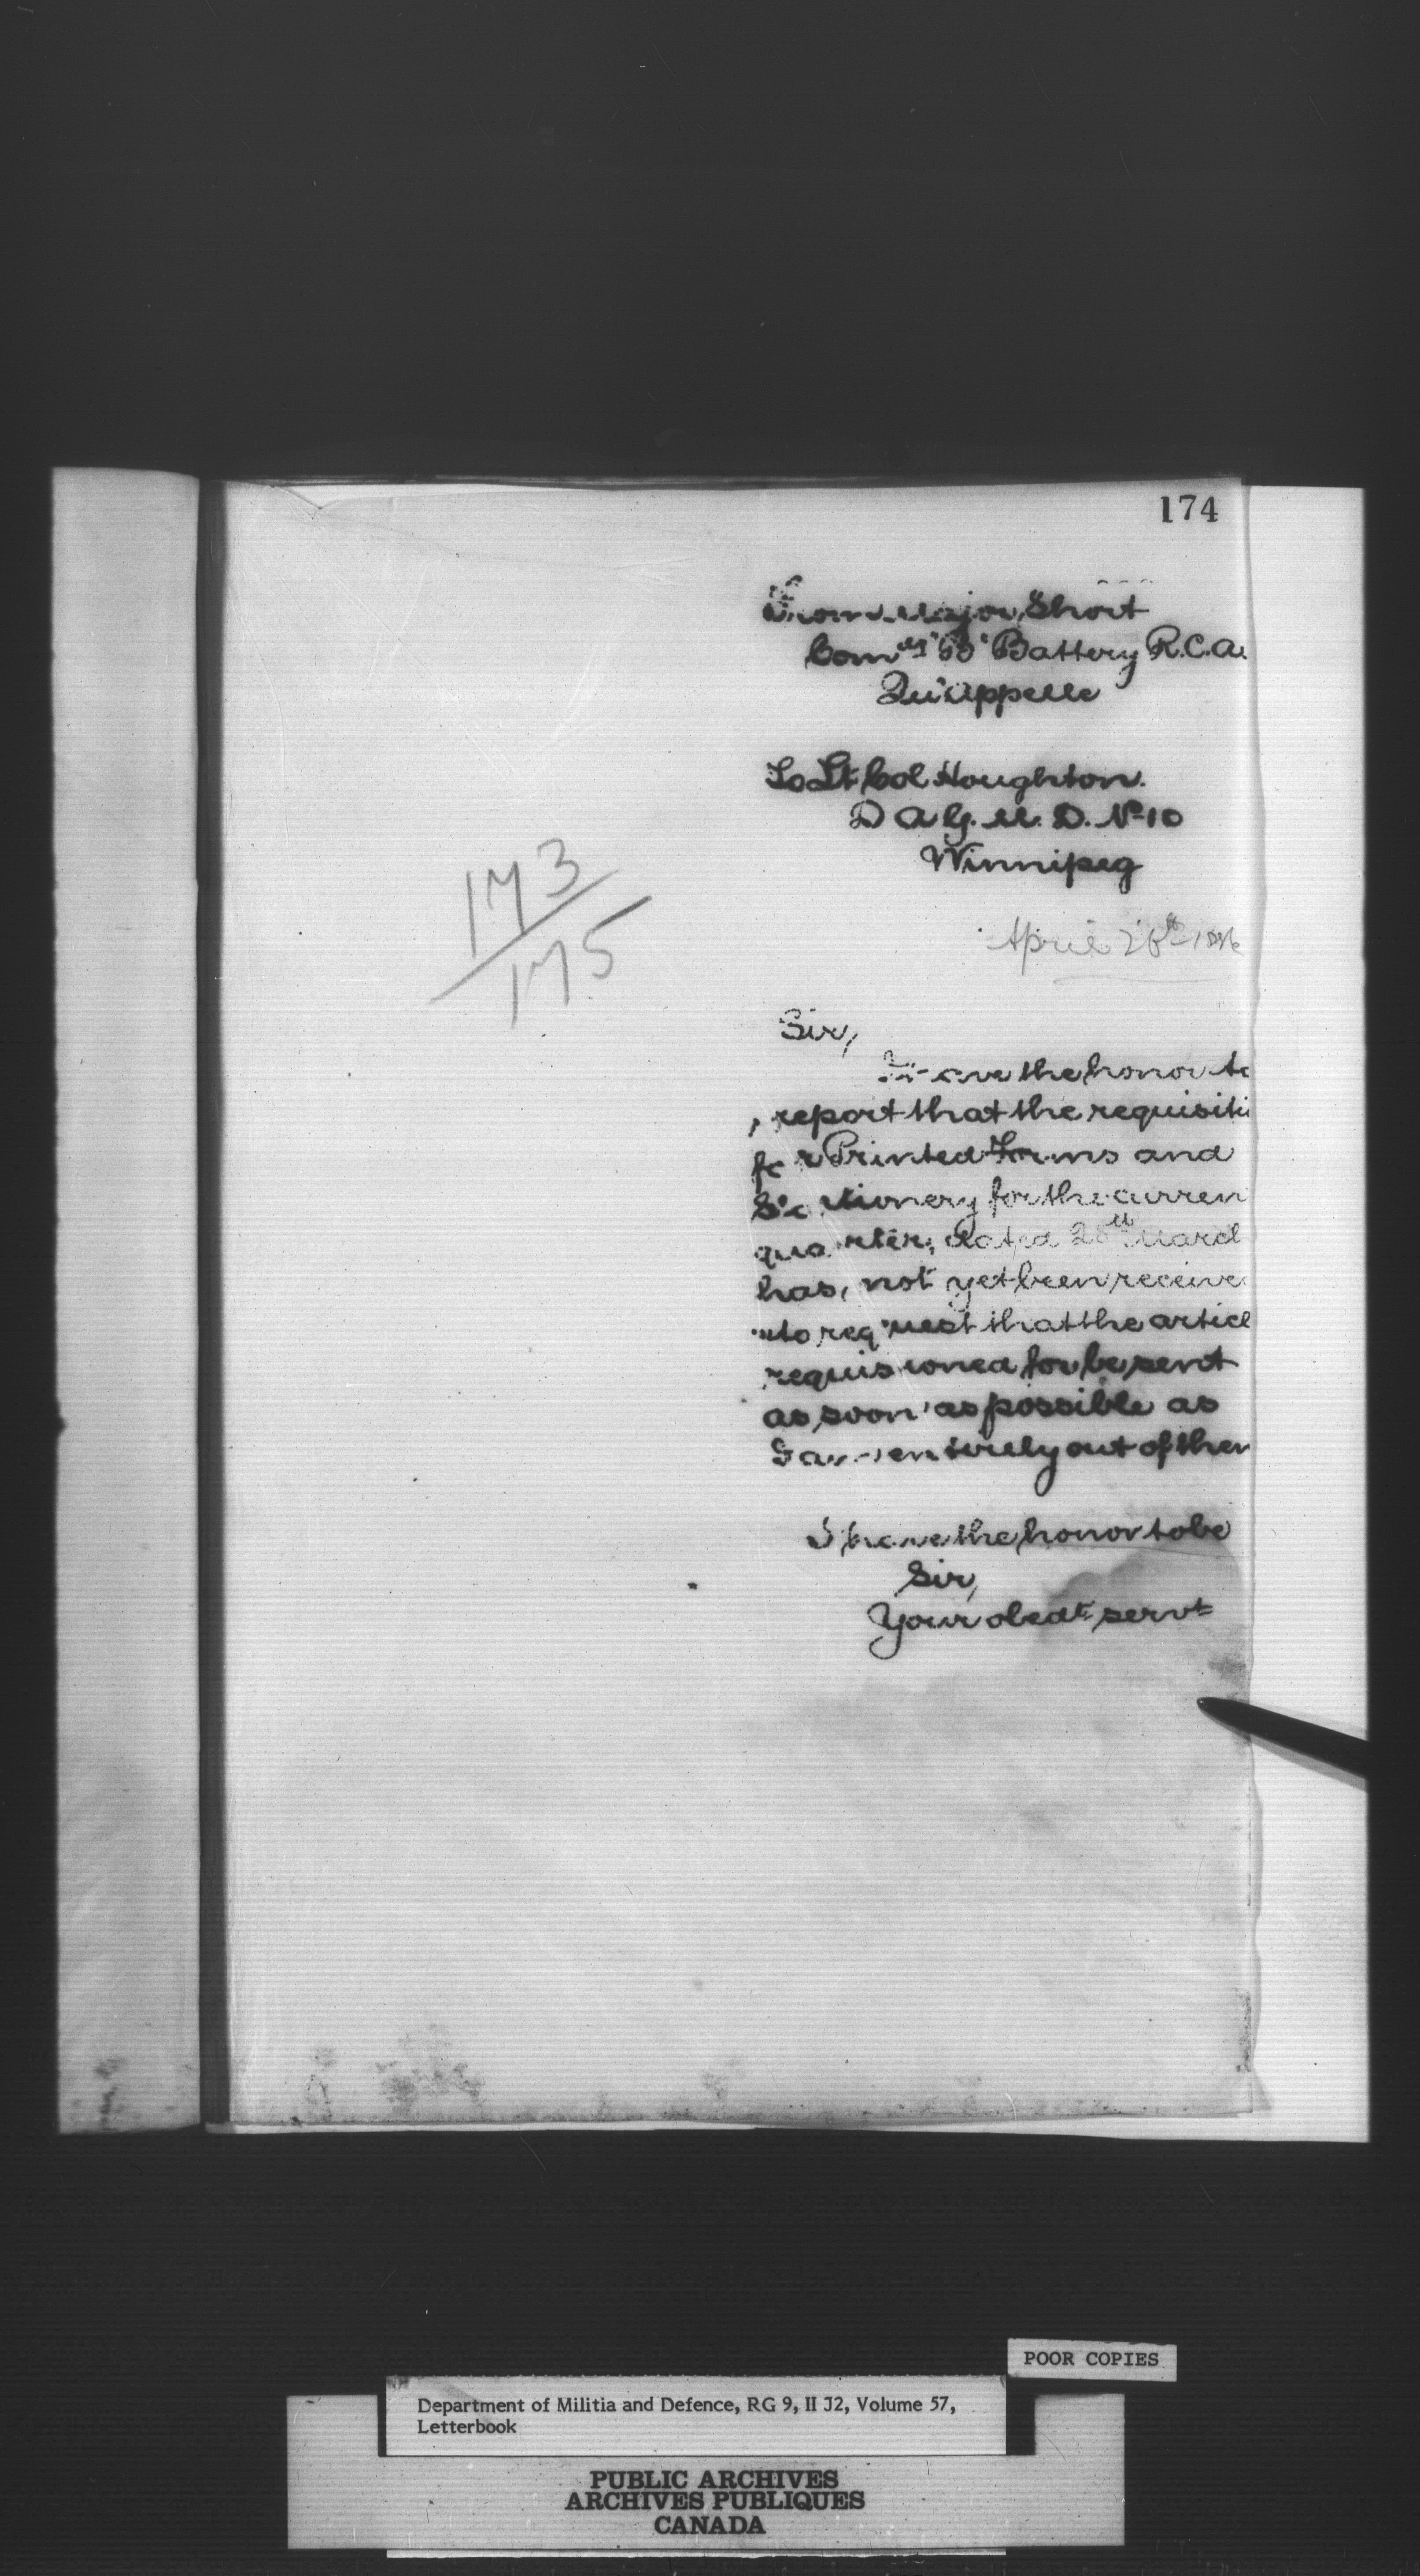 174
From Major Short
Comdg "B" Battery R.C.A.
Qu'Appelle
To Lt Col Houghton.
D A G. M. D. No 10
Winnipeg
173
175
April 28th
Sir,
I have the honor to
report that the requisiti
for Printed Forms and
Stationery for the curren
quarter, dated 28th March
has, not yet been receive
to request that the articl
requisitioned for be sent
as soon as possible as
I am entirely out of them
I have the honor to be
Sir,
Your obedt servt
POOR COPIES
Department of Militia and Defence, RG 9, II J2, Volume 57,
Letterbook
PUBLIC ARCHIVES
ARCHIVES PUBLIQUES
CANADA